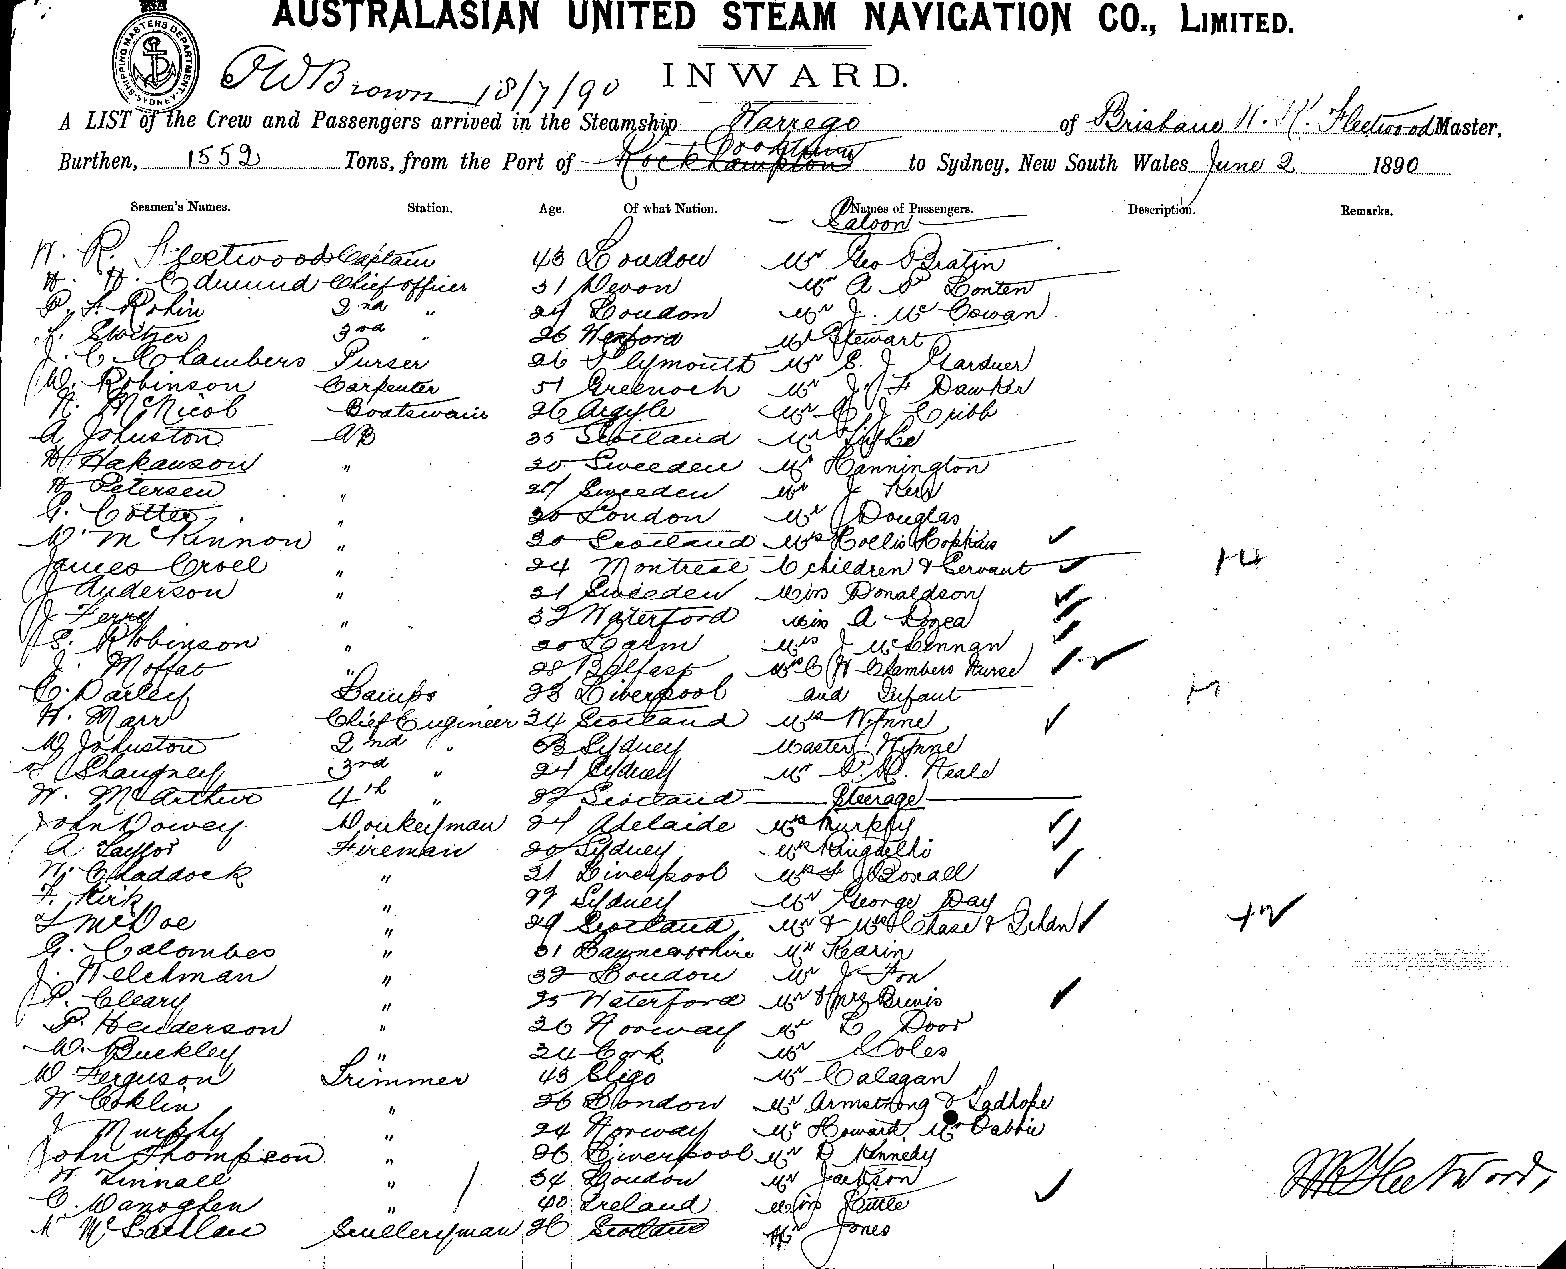 AUSTRALASIAN UNITED STEAM NAVIGATION CO., LIMITED.
SHIPPING MASTERS DEPARTMENT SYDNEY
J W Brown 18/7/90 INWARD.
A LIST of the Crew and Passengers arrived in the Steamship Warrego of Brisbane W. R. Fleetwood Master,
Cooktown
Burthen, 1552 Tons, from the Port of Rockhampton to Sydney, New South Wales June 2 1890
Seamen's Names. Station. Age. Of what Nation. Names of Passengers. Description. Remarks.
Saloon
W. R. Fleetwood Captain 43 London Mr Geo Bratin
Edmund Chief officer 31 Devon Mr A
Robin 2nd " 29 London Mr J. Mc Cowan
Switzer 3rd " 26 Wexford Mr Stewart
J. C Chambers Purser 26 Plymouth Mr E. J. Gardner
W. Robinson Carpenter 51 Greenock Mr J F Dawker
N. McNicol Boatswain 26 Argyle Mr J Cribb
A Johnston AB 35 Scotland Mr
Hakanson " 20 Sweeden Mr Hannington
Petersen " 27 Sweeden Mr J Kerr
G. Cotter " 30 London Mr J Douglas
W McKinnon " 20 Scotland Mrs Hollis Hopkins
James Croel " 24 Montreal 6 children & Servant 14
J Anderson " 21 Sweeden Miss Donaldson
J Ferry " 32 Waterford Miss A
E. Robinson " 20 Mrs J McLennan
J. Moffat " 28 Belfast Mrs C W Chambers Nurse
C. Darley Lamps 23 Liverpool and Infant
W. Marr Chief Engineer 34 Scotland Mrs Wynne
W Johnston 2nd " Sydney Master Wynne
Shaugney 3rd " 24 Sydney Mr Neale
W. McArthur 4th " Scotland Steerage
John Dowey Donkeyman 24 Adelaide Mrs Murphy
A Taylor Fireman 20 Sydney Mrs
W. Chaddock " 21 Liverpool Mrs F J Boxall
F. Kirk " 27 Sydney Mr George Day
McVoe " 29 Scotland Mr & Mrs Chase &
G. Calombes " 31 Mr Kearin
J. Welchman " 32 London Mr J Fox
P. Cleary " 25 Waterford Mr & Mrs Brevis
P. Henderson " 26 Norway Mr Door
W. Buckley " 34 Cork Mr Coles
W Ferguson Trimmer 43 Sligo Mr Calagan
W Coklin " 26 London Mr Armstrong &
J Murphy " 24 Norway Mr Howard, Mr
John Thompson " 26 Liverpool Mr D Kennedy
W Tinnall " 34 London Mr Jackson
C Manoghen " 40 Ireland Miss Little
Mc Scullery man 26 Scotland Mr Jones
W R Fleetwood,